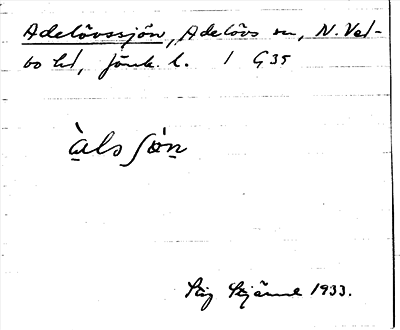 Adelövssjön, Adelövs sn, N. Ved-
bo hd, Jönk. l. 1 G35
àls sòn
Stig Stjärne 1933.